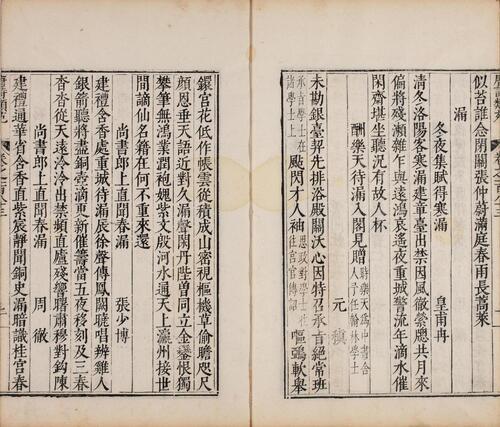 似苔誰念閉關張仲蔚滿庭春雨長蒿萊
漏
冬夜集賦得寒漏
皇甫冉
清冬洛陽客寒漏建章臺出禁因風徹縈牕共月來
偏將殘瀨雜乍與遠鴻哀遙夜重城警流年滴水催
閑齋堪坐聽況有故人杯
酬樂天待漏入閣見贈
時樂天爲中書舍
人予任翰林學士
元稹
未勘銀臺契先排浴殿關沃心因特召承旨絕常班
承旨學士在
諸學士上
颭閃才人袖
思政對學士在
往宮官傳詔
嘔鵶軟舉
鐶宮花低作帳雲從積成山密視樞機草偷瞻咫尺
顏恩垂天語近對久漏聲閑丹陛曽同立金鑾恨獨
攀筆無鴻業潤袍媿紫文殷河水通天上瀛州接世
間謫仙名籍在何不重來還
尚書郎上直聞春漏
張少博
建禮含香處重城待漏辰徐聲傳鳳闕曉唱辨雞人
銀箭聽將盡銅壺滴更新催籌當五夜移刻及三春
杳杳從天遠泠泠出禁頻直廬殘響曙肅穆對鈎陳
尚書郎上直聞春漏
周徹
建禮通華省含香直紫宸靜聞銅史漏暗識桂宮春